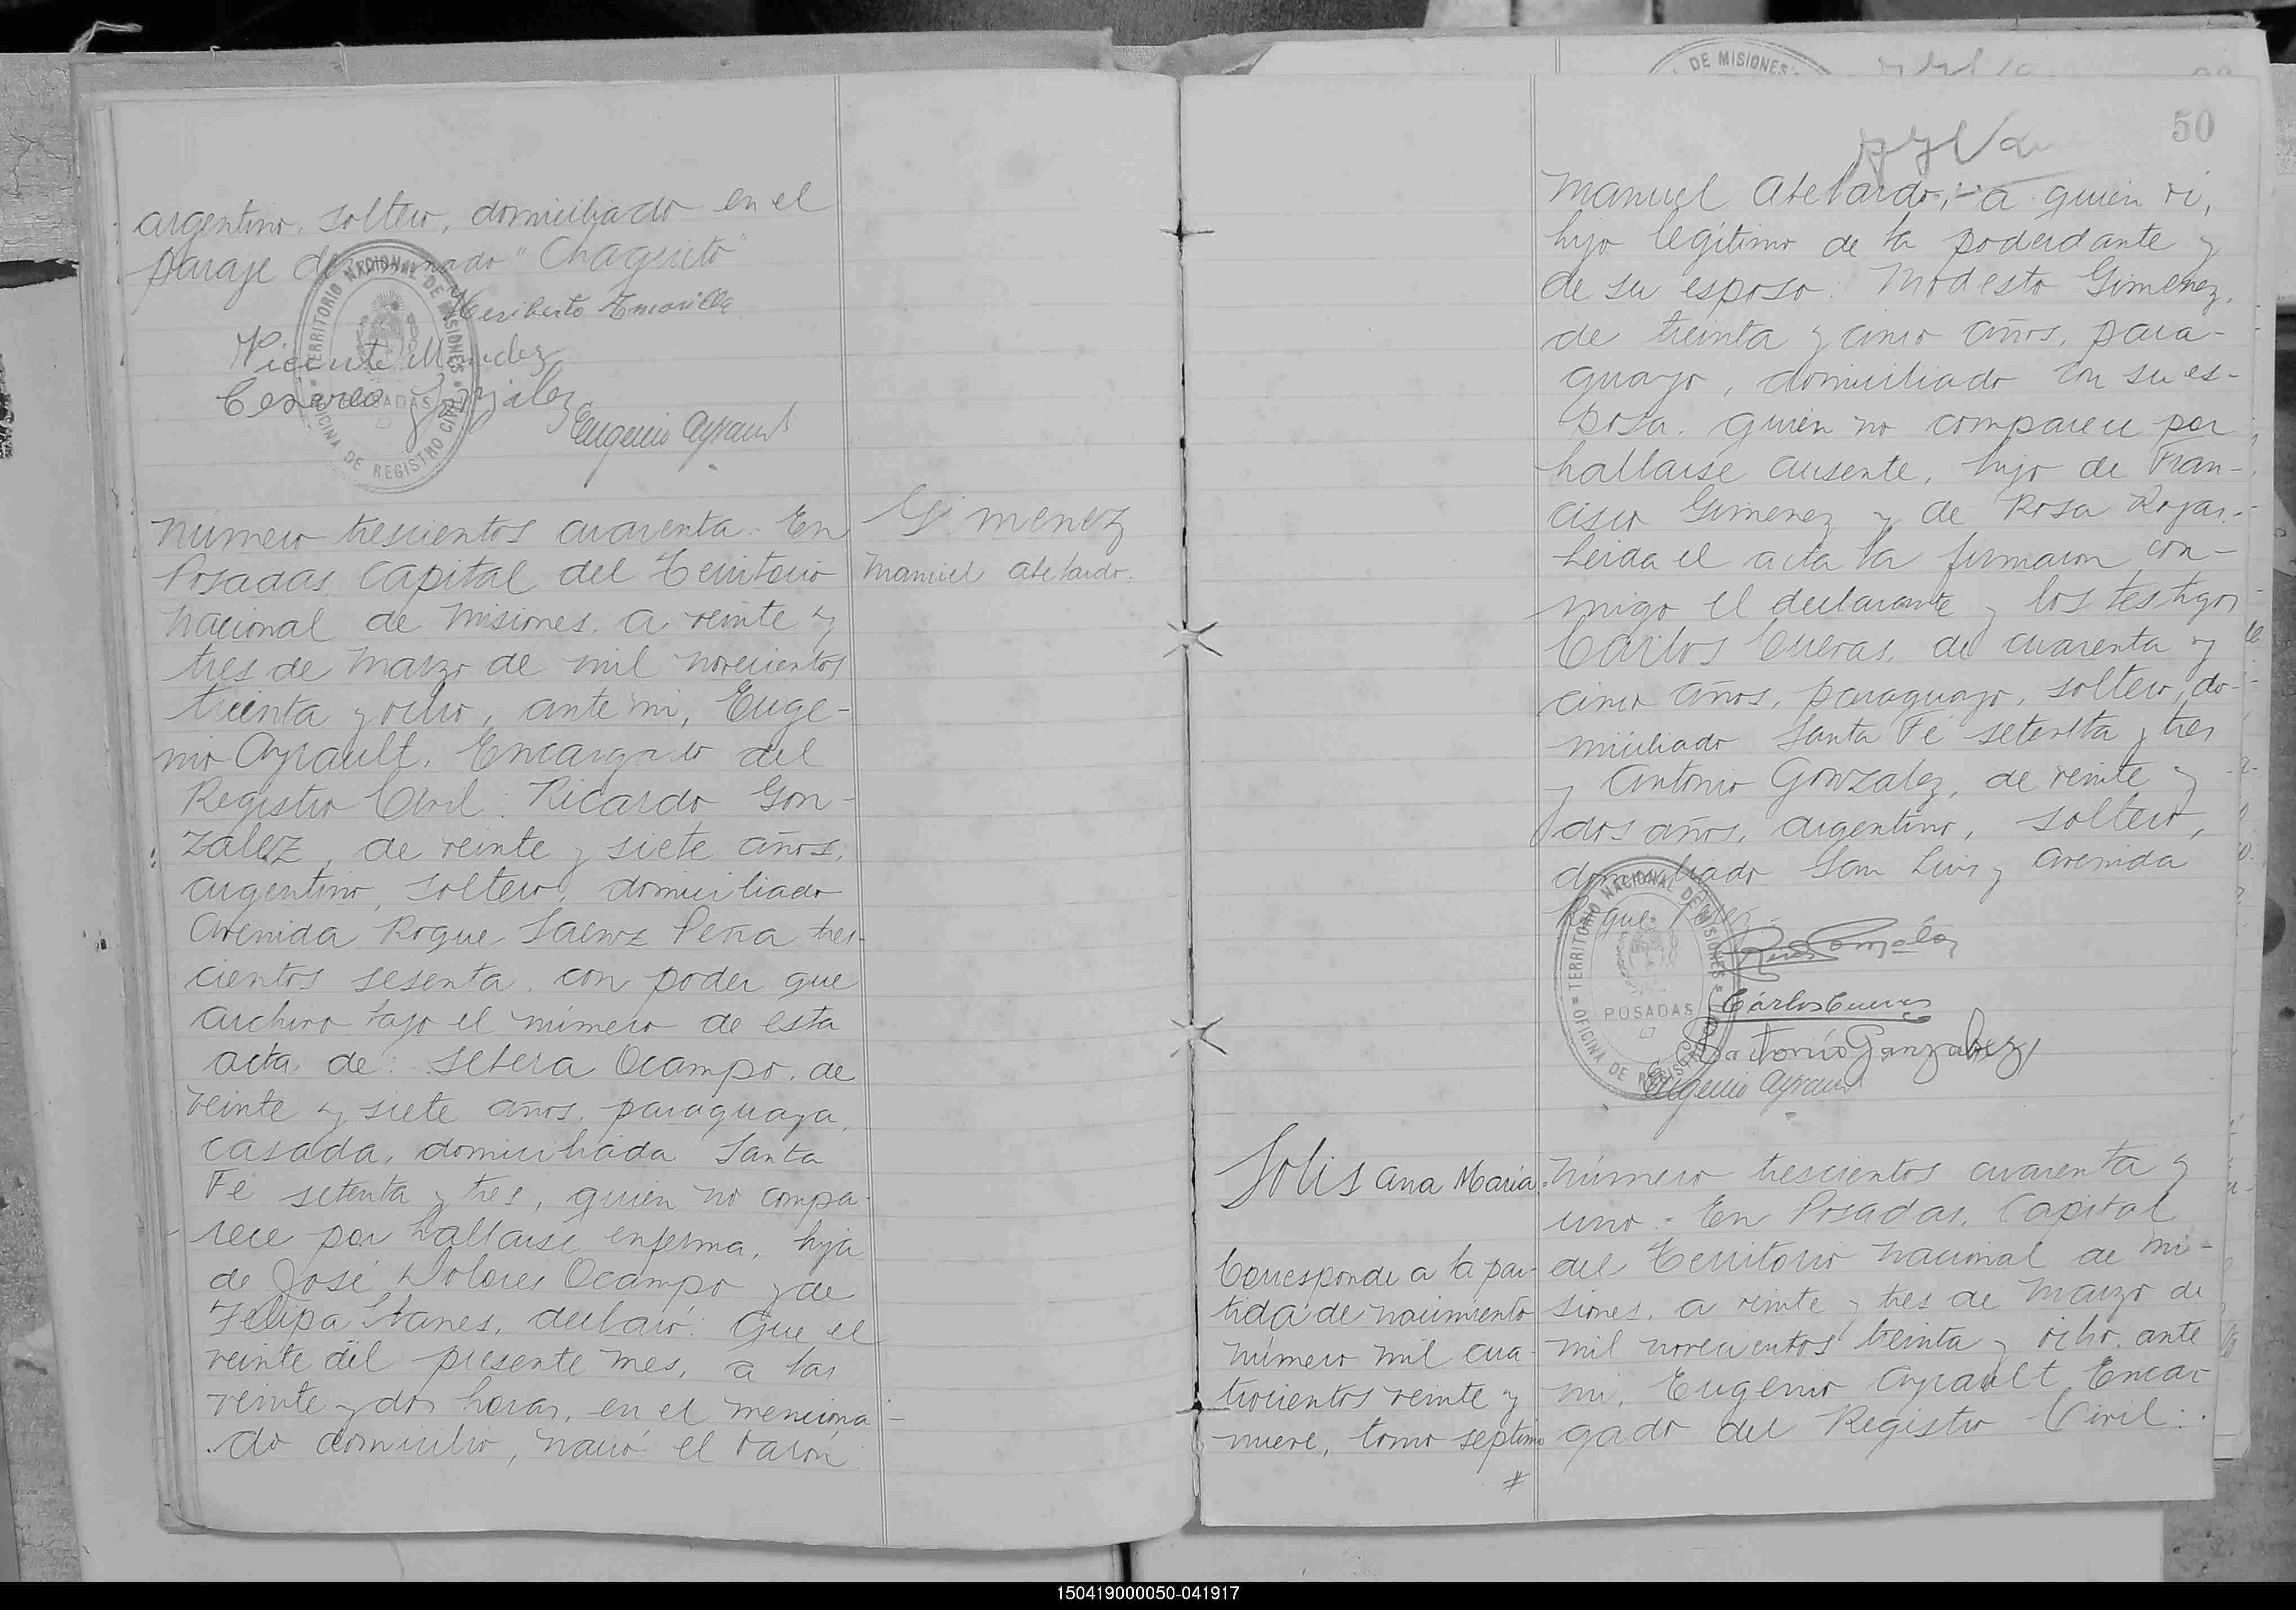 argentino, soltero, domiciliado en el
paraje denominado "Chaquito"
Heriberto
Vicente Mendez
Cesareo Gonzalez
Eugenio Ayrault
TERRITORIO NACIONAL DE MISIONES
POSADAS
OFICINA DE REGISTRO CIVIL
Gimenez
Manuel Abelardo.
Número trescientos cuarenta. En
Posadas, Capital del Territorio
Nacional de Misiones, a veinte y
tres de Marzo de mil novecientos
treinta y ocho, ante mi, Euge-
nio Ayrault, Encargado del
Registro Civil: Ricardo Gon-
zalez, de veinte y siete años,
argentino, soltero, domiciliado
Avenida Roque Saenz Peña tres-
cientos sesenta, con poder que
archivo bajo el número de esta
acta de: Ocampo, de
veinte y siete años, paraguaya,
casada, domiciliada Santa
Fé setenta y tres, quien no compa-
rece por hallarse enferma, hija
de José Dolores Ocampo y de
Felipa declaró: Que el
veinte del presente mes, a las
veinte y dos horas, en el menciona-
do domicilio, nació el varón
DE MISIONES
50
Manuel Abelardo, a quien vi,
hijo legítimo de la poderdante y
de su esposo: Modesto Gimenez,
de treinta y cinco años, para-
guayo, domiciliado con su es-
posa, quien no comparece por
hallarse ausente, hijo de Fran-
cisco Gimenez y de Rosa Rojas.-
Leida el acta la firmaron con-
migo el declarante y los testigos
Carlos Cuevas, de cuarenta y
cinco años, paraguayo, soltero, do-
miciliado Santa Fé setenta y tres
y Antonio Gonzalez, de veinte y
dos años, argentino, soltero,
domiciliado San Luis y Avenida
Roque Perez.
Carlos Cuevas
Antonio Gonzalez
Eugenio Ayrault
TERRITORIO NACIONAL DE MISIONES
POSADAS
OFICINA DE REGISTRO CIVIL
Solis Ana María.
Corresponde a la par-
tida de nacimiento
número mil cua-
trocientos veinte y
nueve, tomo septimo
#
Número trescientos cuarenta y
uno.- En Posadas, Capital
del Territorio Nacional de Mi-
siones, a veinte y tres de Marzo de
mil novecientos treinta y ocho, ante
mi, Eugenio Ayrault, Encar
gado del Registro Civil:
150419000050-041917